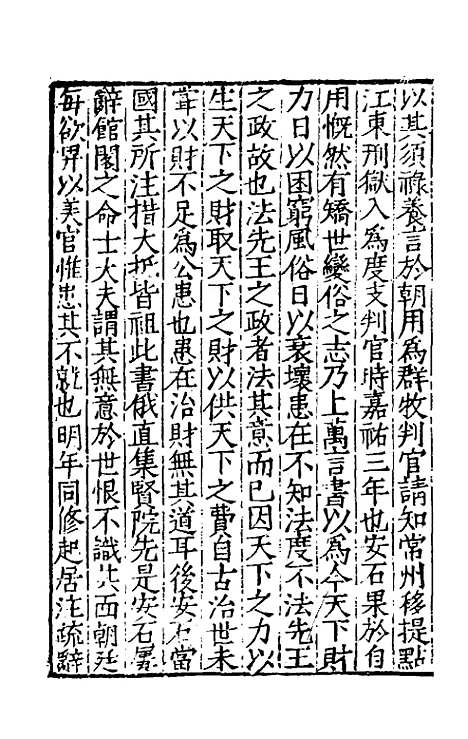 以其須祿養言於朝用為群牧判官請知常州移提點
江東刑獄入為度支判官時嘉祐三年也安石果於自
用慨然有矯世變俗之志乃上萬言書以為今天下財
力日以困窮風俗日以衰壞患在不知法度不法先王
之政故也法先王之政者法其意而已因天下之力以
生天下之財取天下之財以供天下之費自古治世未
嘗以財不足為公患也患在治財無其道耳後安石當
國其所注措大抵皆祖此書俄直集賢院先是安石屢
辭館閣之命士大夫謂其無意於世恨不識其面朝廷
每欲畀以美官惟患其不就也明年同修起居注疏辭